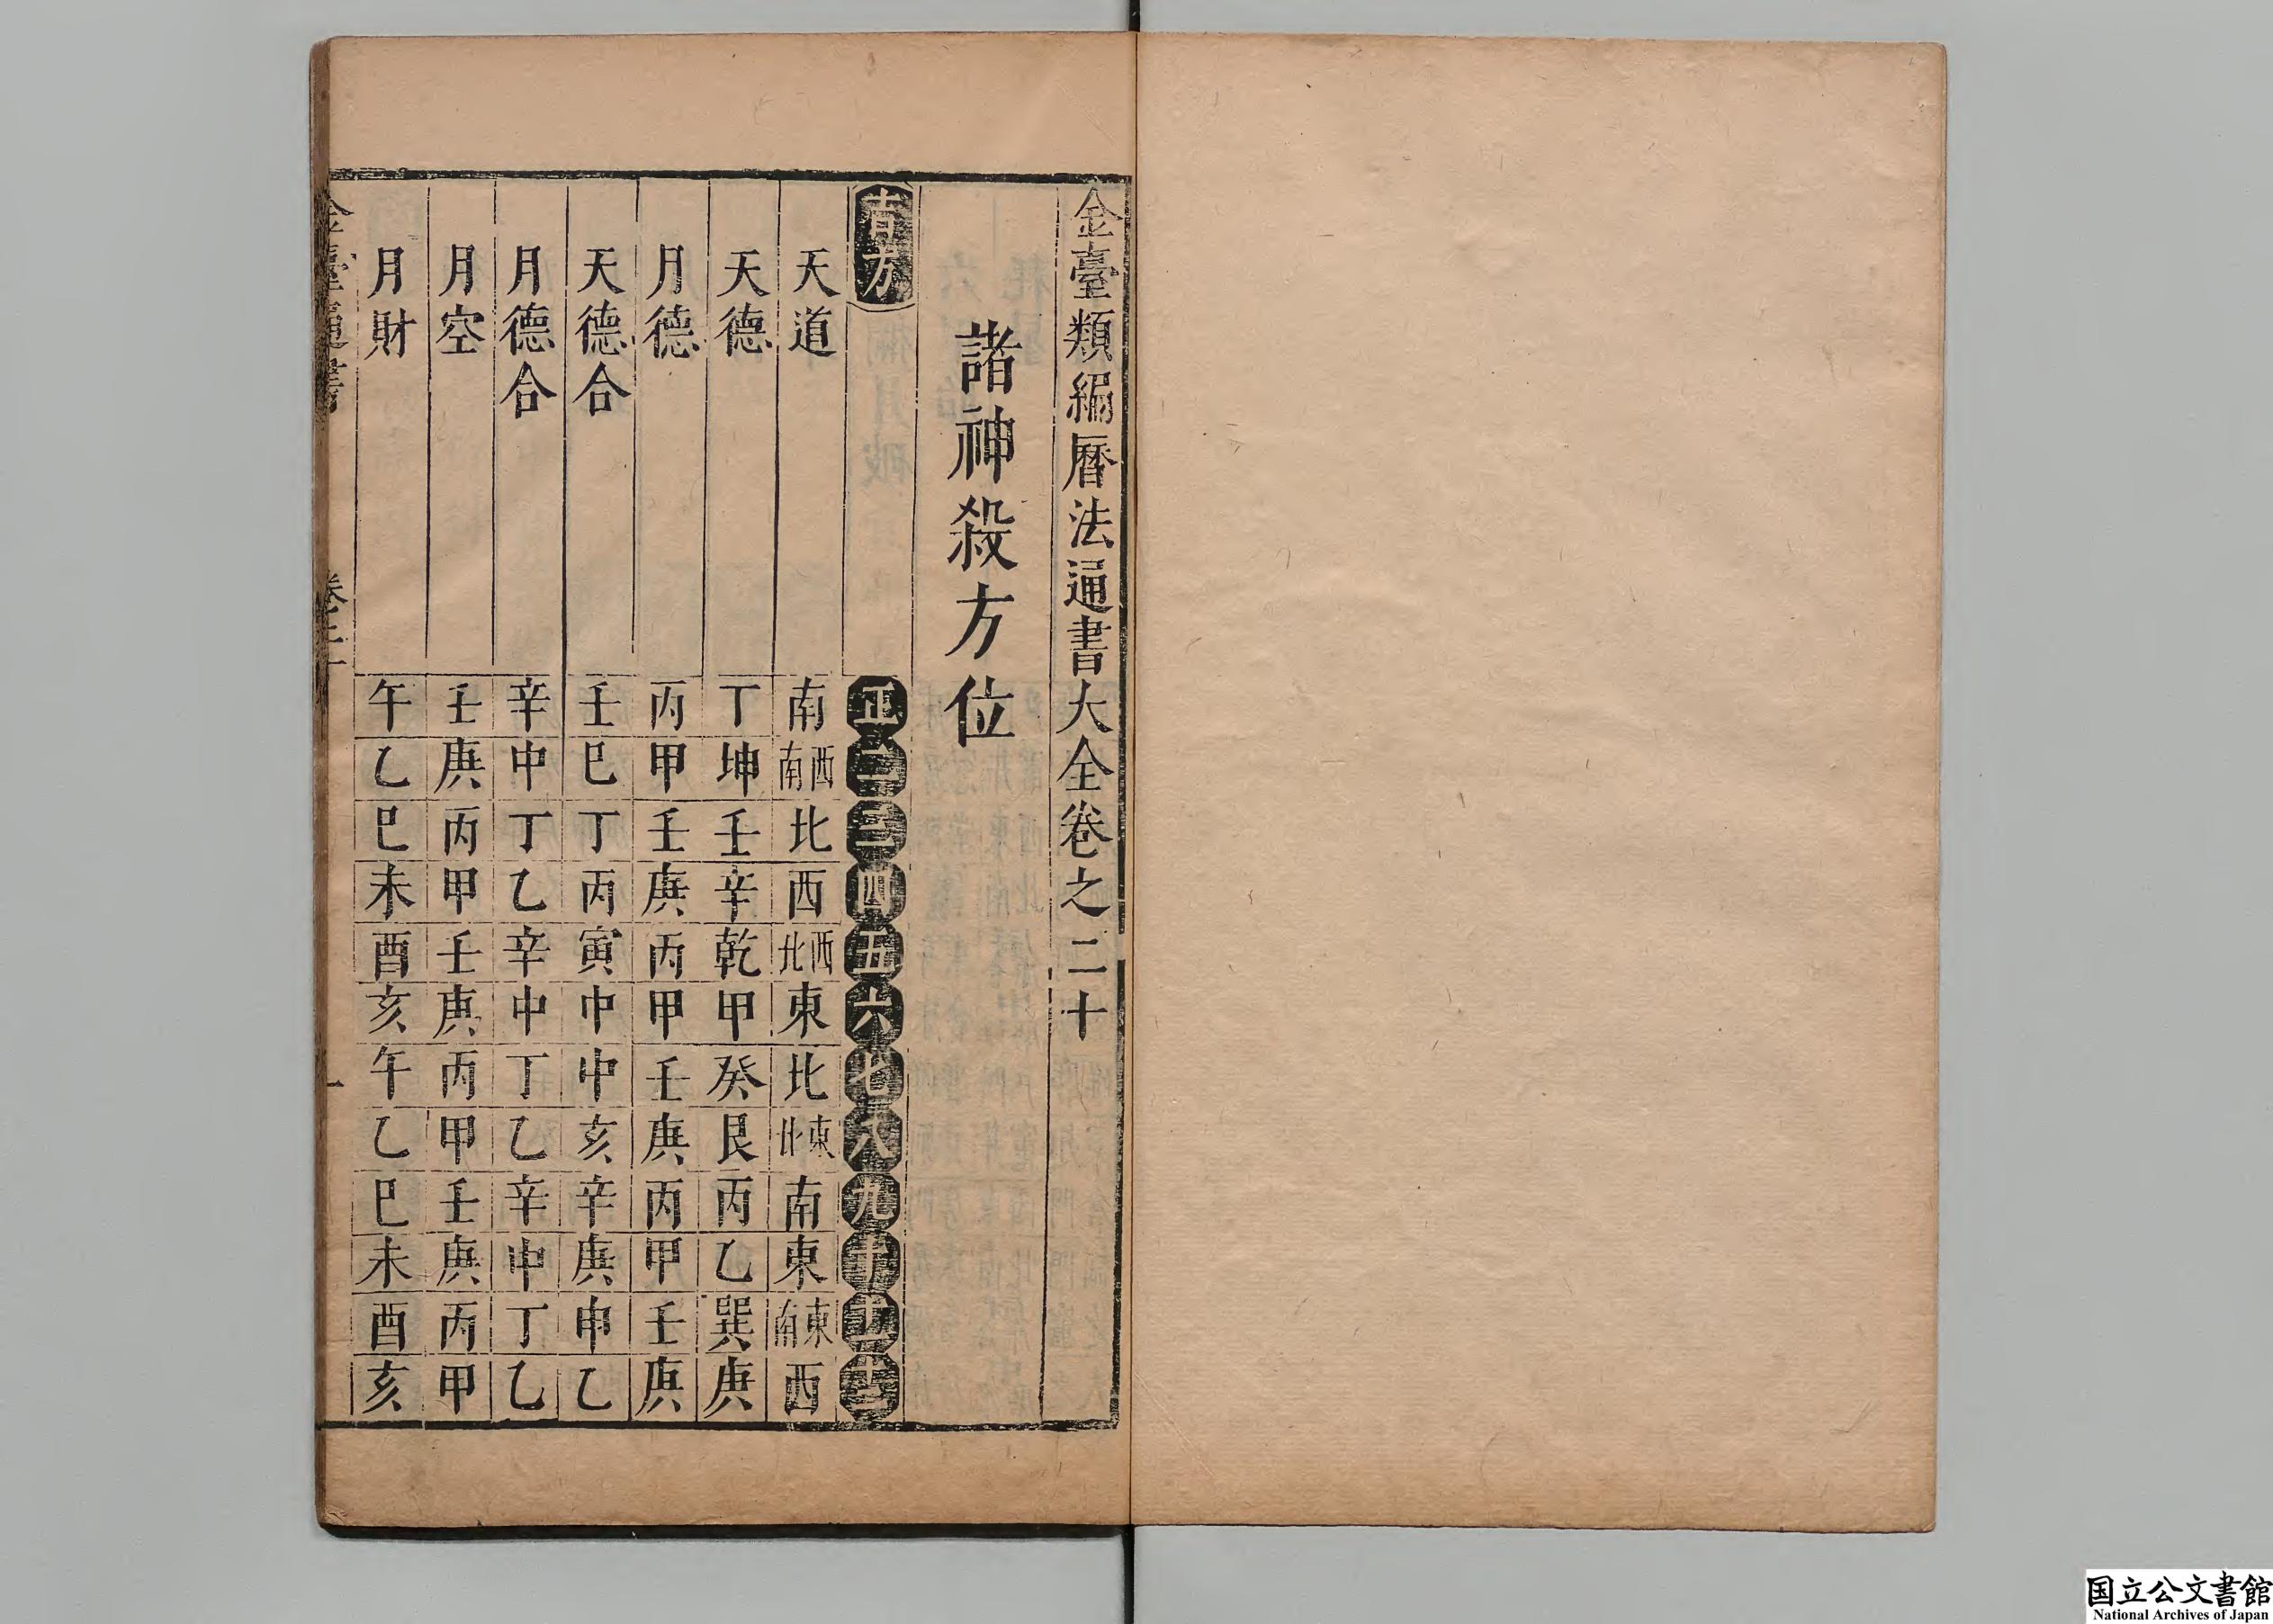 金臺類編曆法通書大全卷之二十
諸神殺方位
吉方 正 二 三 四 五 六 七 八 九 十 十一 十二
天道 南 西南 北 西 西北 東 北 東北 南 東 東南 西
天德 丁 坤 壬 辛 乾 甲 癸 艮 丙 乙 巽 庚
月德 丙 甲 壬 庚 丙 甲 壬 庚 丙 甲 壬 庚
天德合 壬 巳 丁 丙 寅 中 中 亥 辛 庚 申 乙
月德合 辛 中 丁 乙 辛 中 丁 乙 辛 中 丁 乙
月空 壬 庚 丙 甲 壬 庚 丙 甲 壬 庚 丙 甲
月財 午 乙 巳 未 酉 亥 午 乙 巳 未 酉 亥
金臺通書 卷之二十 一
国立公文書館
National Archives of Japan